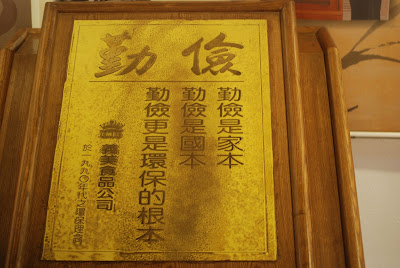 勤儉
勤儉是家本
勤儉是國本
勤儉更是環保的根本
義美食品公司
於一九九○年代之環保理念